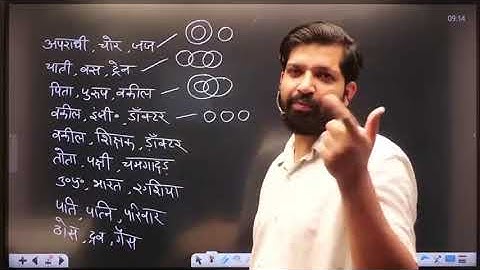 09:14
अपराधी, चोर, जज
यात्री, बस, ट्रेन
पिता, पुरुष, वकील
वकील, इंजी॰ डॉक्टर
वकील, शिक्षक, डॉक्टर
तोता, पक्षी, चमगादड़
उ॰प्र॰, भारत, एशिया
पति, पत्नि, परिवार
ठोस, द्रव, गैस